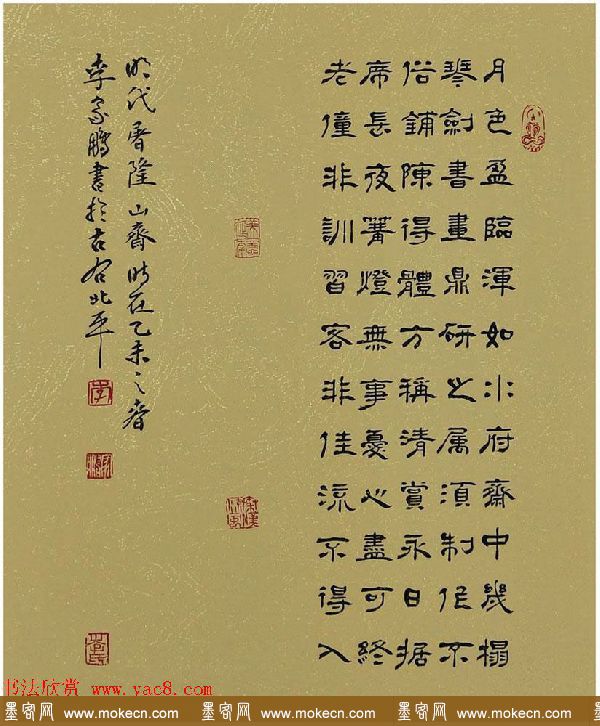 月色盈臨渾如水府齋中幾榻
琴劍書畫鼎研之属須制作不
俗鋪陳得體方稱清賞永日据
席長夜篝燈無事憂心盡可終
老僮非訓習客非佳流不得入
明代屠隆山齋時在乙未之春
李家鵬書於古右北平
书法欣赏 www.yac8.com
墨客网 www.mokecn.com 墨客网 www.mokecn.com 墨客网 www.mokecn.com